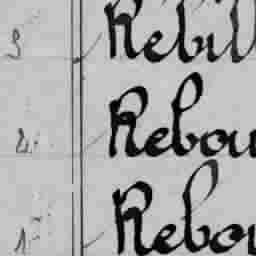 3 Rebill
4. Rebou
1 Rebou